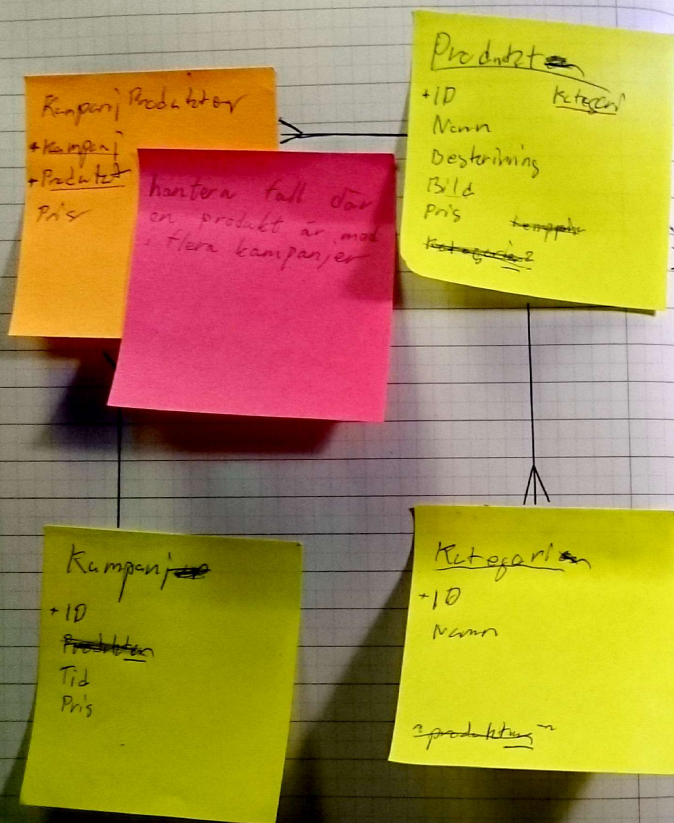 Kampanj Produkter
+Kampanj
+Produkt
Pris
hantera fall där
en produkt är med
i flera kampanjer
Produkt
+ID
Kategori
Namn
Beskrivning
Bild
Pris
Kategorie?
Kampanj
+ID
Produkten
Tid
Pris
Kategori
+ID
Namn